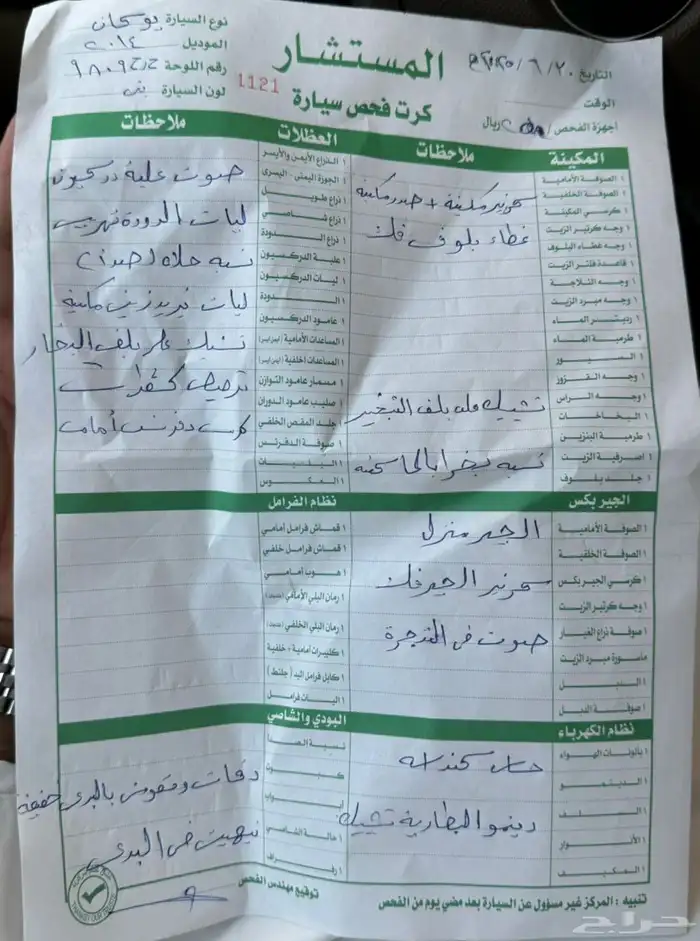 المستشار
كرت فحص سيارة
1121
نوع السيارة يوكن
الموديل ٢٠١٤
رقم اللوحة
لون السيارة بني
التاريخ ٢٠/٦/٢٠٢٥م
الوقت
اجهزة الفحص/ ريال
المكينة
ملاحظات
١ الصوفة الأمامية
١ الصوفة الخلفية
١ كرسي المكينة
١ وجه كرتير الزيت
١ وجه غطاء البلوف
١ قاعدة فلتر الزيت
١ وجه الثلاجة
١ وجه مبرد الزيت
١ رديتر الماء
١ طرمبة الماء
١ السيور
١ وجه القزوز
١ وجه الراس
١ البخاخات
١ طرمبة البنزين
١ صرفية الزيت
١ جلد بلوف
تهريب مكينة + صدر مكينة
غطاء بلوف فك
تشييك على بلف التبخير
نسبه بخر ابالحاسخنه
العضلات
ملاحظات
١ الذراع الأيمن والأيسر
١ الجوزة اليمنى - اليسرى
١ ذراع طويل
١ ذراع شاصي
١ ذراع الدودة
١ علبة الدركسيون
١ ليات الدركسيون
١ الدودة
١ عامود الدركسيون
١ المساعدات الأمامية (يبرير)
١ المساعدات اخلفية (يبرير)
١ مسمار عامود التوازن
١ صليب عامود الدوران
١ جلد المقص الخلفي
١ صوفة الدفرنس
١ البلبات
١ العكوس
صوت علبة دركسون
ليات الدودة تهريب
نسبه خلاه (صدا)
ليات تبريد زيت مكينة
تشيك على بلف البخار
ترصيص كفرات
كرسي دفرنس أمامي
الجير بكس
١ الصوفة الأمامية
١ الصوفة الخلفية
١ كرسي الجير بكس
١ وجه كرتير الزيت
١ صوفة ذراع الغيار
ماسورة مبرد الزيت
١ السيل
١ صوفة الدبل
الجير منزل
تهريب الجير فك
صوت في القدجرة
نظام الفرامل
١ قماش فرامل أمامي
١ قماش فرامل خلفي
١ هوب أمامي
١ رمان البلي الأمامي
١ رمان البلي الخلفي
١ كليبرات أمامية + خلفية
١ كابل فرامل اليد (جلنط)
١ اليات فرامل
نظام الكهرباء
١ بالونات الهواء
١ الدينمو
١ السلف
١ الأنوار
١ المكيف
دينمو البطارية تشييك
البودي والشاصي
نسبة الصدا
كبوت
أبواب
١ حالة الشاصي
١ رفراف
دقات ونقوش بالبدي خفيفة
تبهيت في البدي
توقيع مهندس الفحص
تنبيه : المركز غير مسؤول عن السيارة بعد مضي يوم من الفحص
حراج